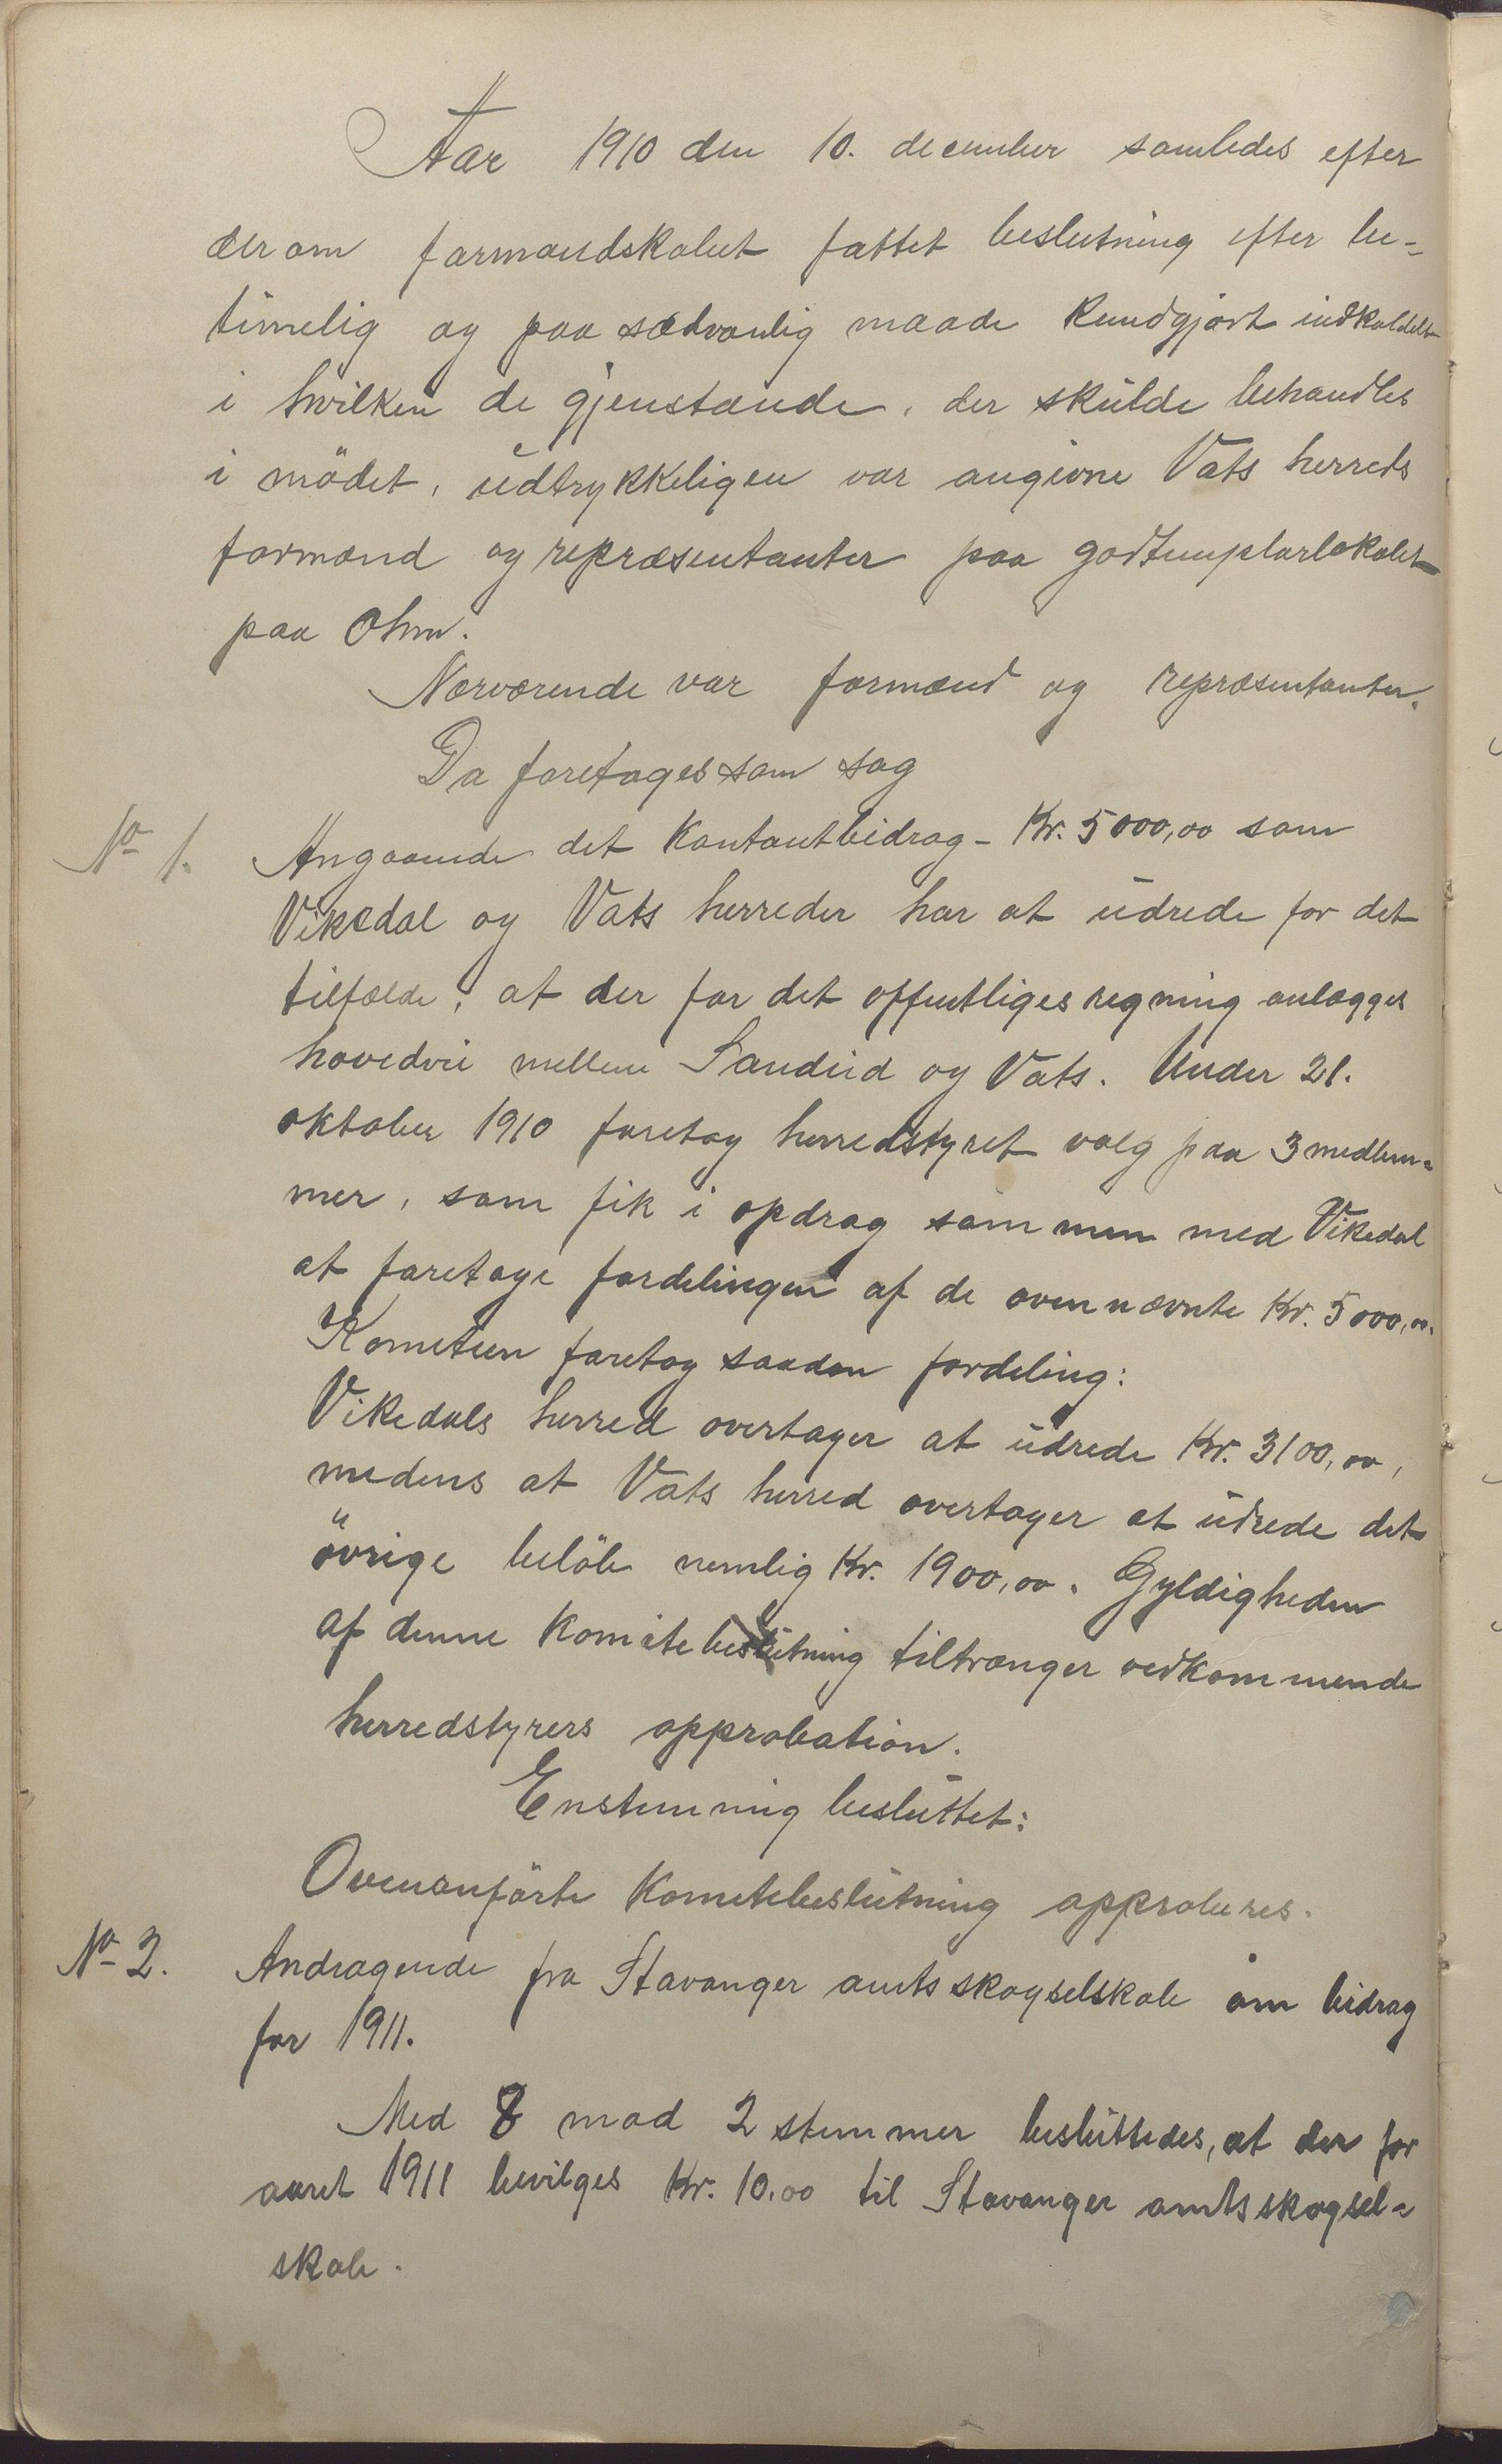 Aar 1910 den 10. december samledes efter
derom formandskabet fattet beslutning efter be-
timelig og paa sædvanlig maade kundgjort indkaldelse
i hvilken de gjenstande, der skulde behandles
i mödet, udtrykkeligen var angivne Vats herreds
formænd og repræsentanter paa godtemplarlokalet
paa Ohm.
Nærværende var formænd og repræsentanter.
Da foretages som sag
No 1. Angaaende det kontantbidrag - Kr. 5000,00 som
Vikedal og Vats herreder har at udrede for det
tilfælde, at der for det offentliges regning anlægges
hovedvei mellem Sandeid og Vats. Under 21.
oktober 1910 foretog herredstyret valg paa 3 medlem-
mer, som fik i opdrag sammen med Vikedal
at foretage fordelingen af de ovennævnte Kr. 5000,00.
Kometeen foretog saadan fordeling:
Vikedals herred overtager at udrede Kr. 3100,00,
medens at Vats herred overtager at udrede det
övrige belöb nemlig Kr. 1900,00. Gyldigheden
af denne komitebeslutning tiltrænger vedkommende
herredstyrers approbation.
Enstemmig besluttet:
Ovenanförte kometebeslutning approberes.
No 2. Andragende fra Stavanger amts skogselskab om bidrag
for 1911.
Med 8 mod 2 stemmer besluttedes, at der for
aaret 1911 bevilges Kr. 10.00 til Stavanger amts skogsel-
skab.